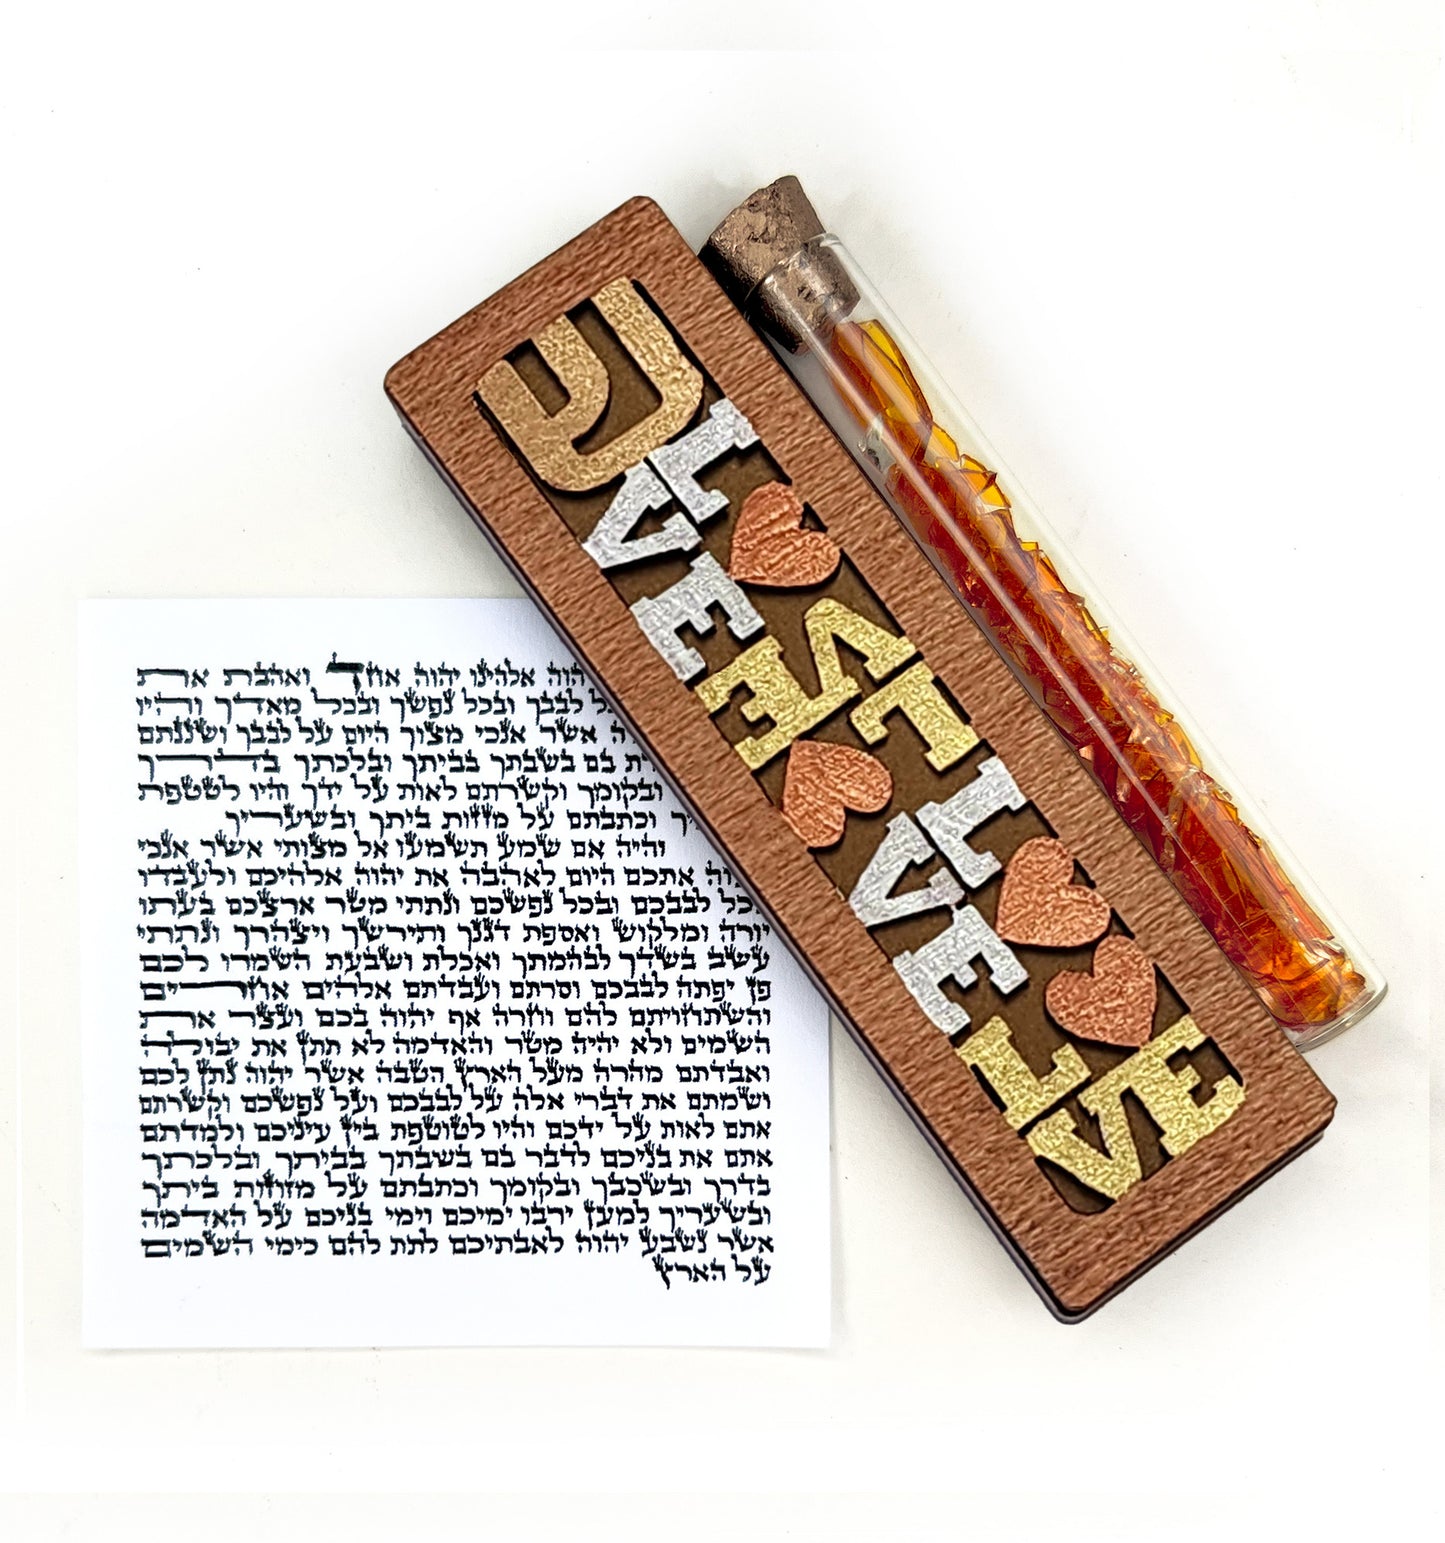 ש
L♥VE
L♥VE
L♥VE
L♥VE
אלהינו יהוה אחד ואהבת את
לבבך ובכל נפשך ובכל מאדך והיו
אשר אנכי מצוך היום על לבבך ושננתם
בם בשבתך בביתך ובלכתך בדרך
ובקומך וקשרתם לאות על ידך והיו לטטפת
וכתבתם על מזזות ביתך ובשעריך
והיה אם שמע תשמעו אל מצותי אשר אנכי
אתכם היום לאהבה את יהוה אלהיכם ולעבדו
לבבכם ובכל נפשכם ונתתי מטר ארצכם בעתו
יורה ומלקוש ואספת דגנך ותירשך ויצהרך ונתתי
עשב בשדך לבהמתך ואכלת ושבעת השמרו לכם
פן יפתה לבבכם וסרתם ועבדתם אלהים אחרים
והשתחויתם להם וחרה אף יהוה בכם ועצר את
השמים ולא יהיה מטר והאדמה לא תתן את יבולה
ואבדתם מהרה מעל הארץ הטבה אשר יהוה נתן לכם
ושמתם את דברי אלה על לבבכם ועל נפשכם וקשרתם
אתם לאות על ידכם והיו לטוטפת בין עיניכם ולמדתם
אתם את בניכם לדבר בם בשבתך בביתך ובלכתך
בדרך ובשכבך ובקומך וכתבתם על מזוזות ביתך
ובשעריך למען ירבו ימיכם וימי בניכם על האדמה
אשר נשבע יהוה לאבתיכם לתת להם כימי השמים
על הארץ